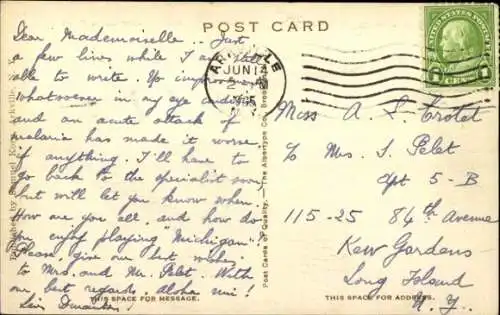 POST CARD
Dear Mademoiselle.. Just
a few lines while I am still
able to write. No improvement
whatsoever in my eye condition
and an acute attack of
malaria has made it worse
if anything. I'll have to
go back to the specialist soon
but will let you know when.
How are you all, and how do
you enjoy playing "Michigan"?
Please give our best wishes
to Mrs. and Mr. Pelet. With
our best regards, aloha nui!
THIS SPACE FOR MESSAGE.
Published by Samuel Arkville
Post Cards of Quality. — The Albertype Co., Brooklyn
ARKVILLE
JUN 14
UNITED STATES POSTAGE
1 CENT 1
Miss A. L. Trotet
c/o Mrs. S. Pelet
Apt 5-B
115-25 84th Avenue
Kew Gardens
Long Island
N. Y.
THIS SPACE FOR ADDRESS.